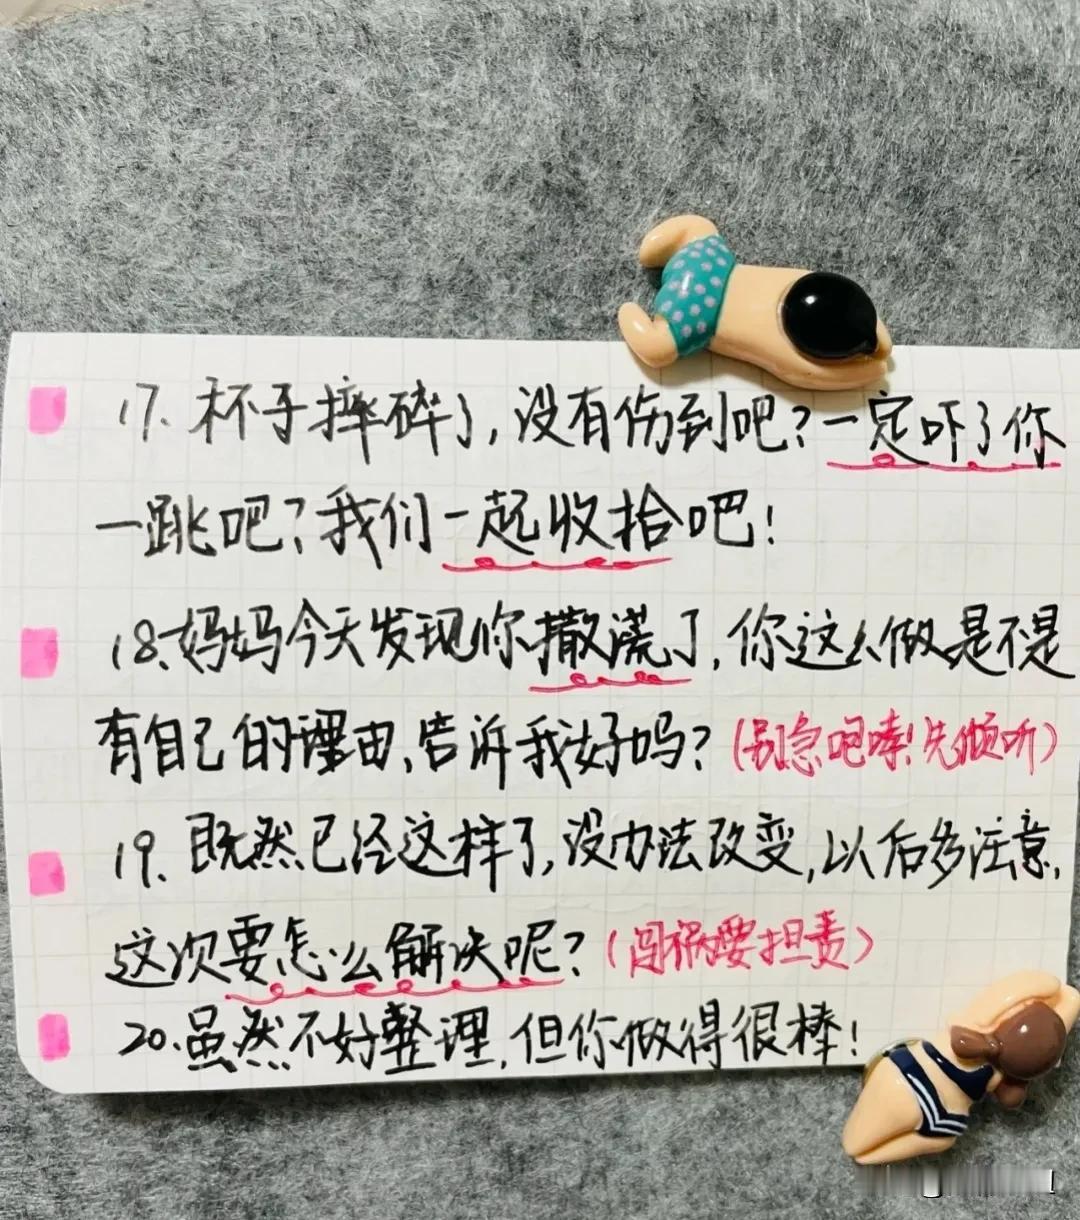 17. 杯子摔碎了,没有伤到吧?一定吓了你
一跳吧?我们一起收拾吧!
18、妈妈今天发现你撒谎了,你这么做是不是
有自己的理由,告诉我好吗?(别急咆哮!先倾听)
19. 既然已经这样了,没办法改变,以后多注意,
这次要怎么解决呢?(闯祸要担责)
20.虽然不好整理,但你做得很棒!